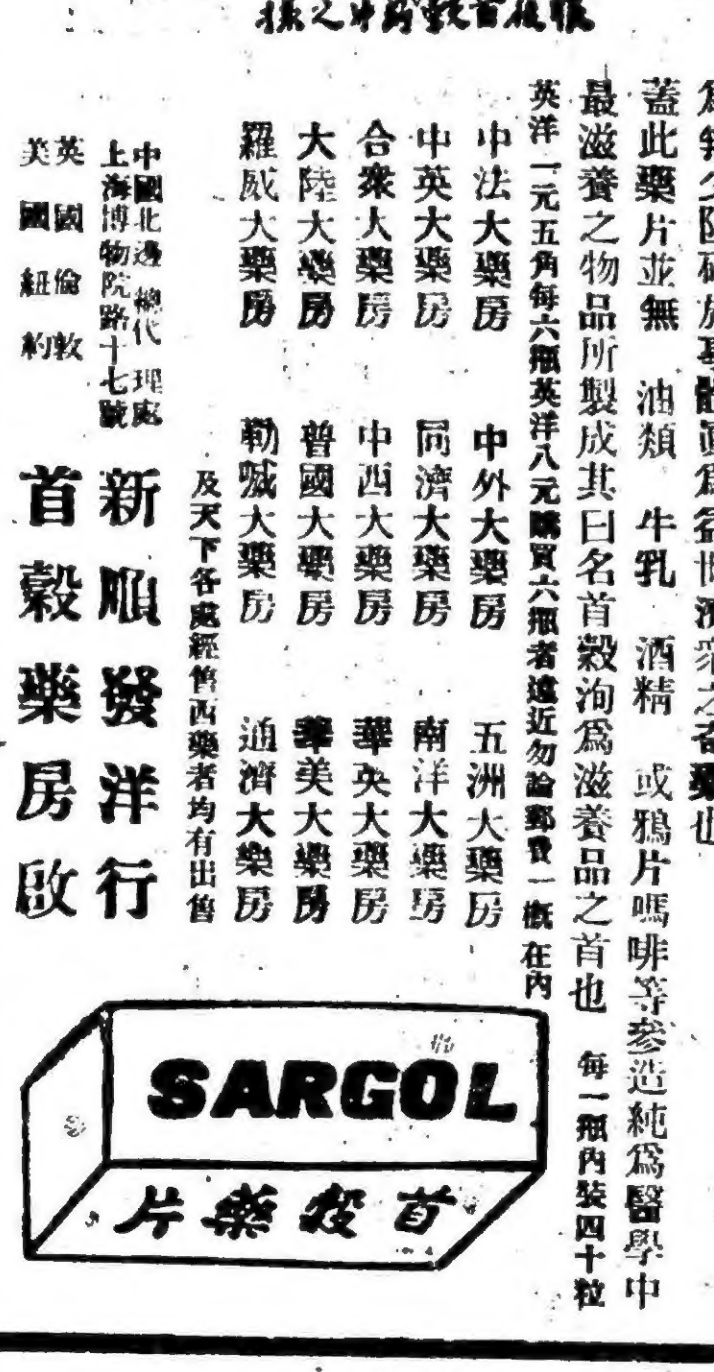 蓋此藥片並無　油類　牛乳　酒精　或鴉片嗎啡等參造純爲醫學中
最滋養之物品所製成其曰名首穀洵爲滋養品之首也　每一瓶內裝四十粒
英洋一元五角每六瓶英洋八元購買六瓶者遠近勿論郵費一概在內
中法大藥房　中外大藥房　五洲大藥房
中英大藥房　同濟大藥房　南洋大藥房
合衆大藥房　中西大藥房　華英大藥房
大陸大藥房　普國大藥房　華美大藥房
羅威大藥房　勒喊大藥房　通濟大藥房
及天下各處經售西藥者均有出售
中國北邊總代理處
上海博物院路十七號
新順發洋行
英國倫敦
美國紐約
首穀藥房啟
SARGOL
首穀藥片